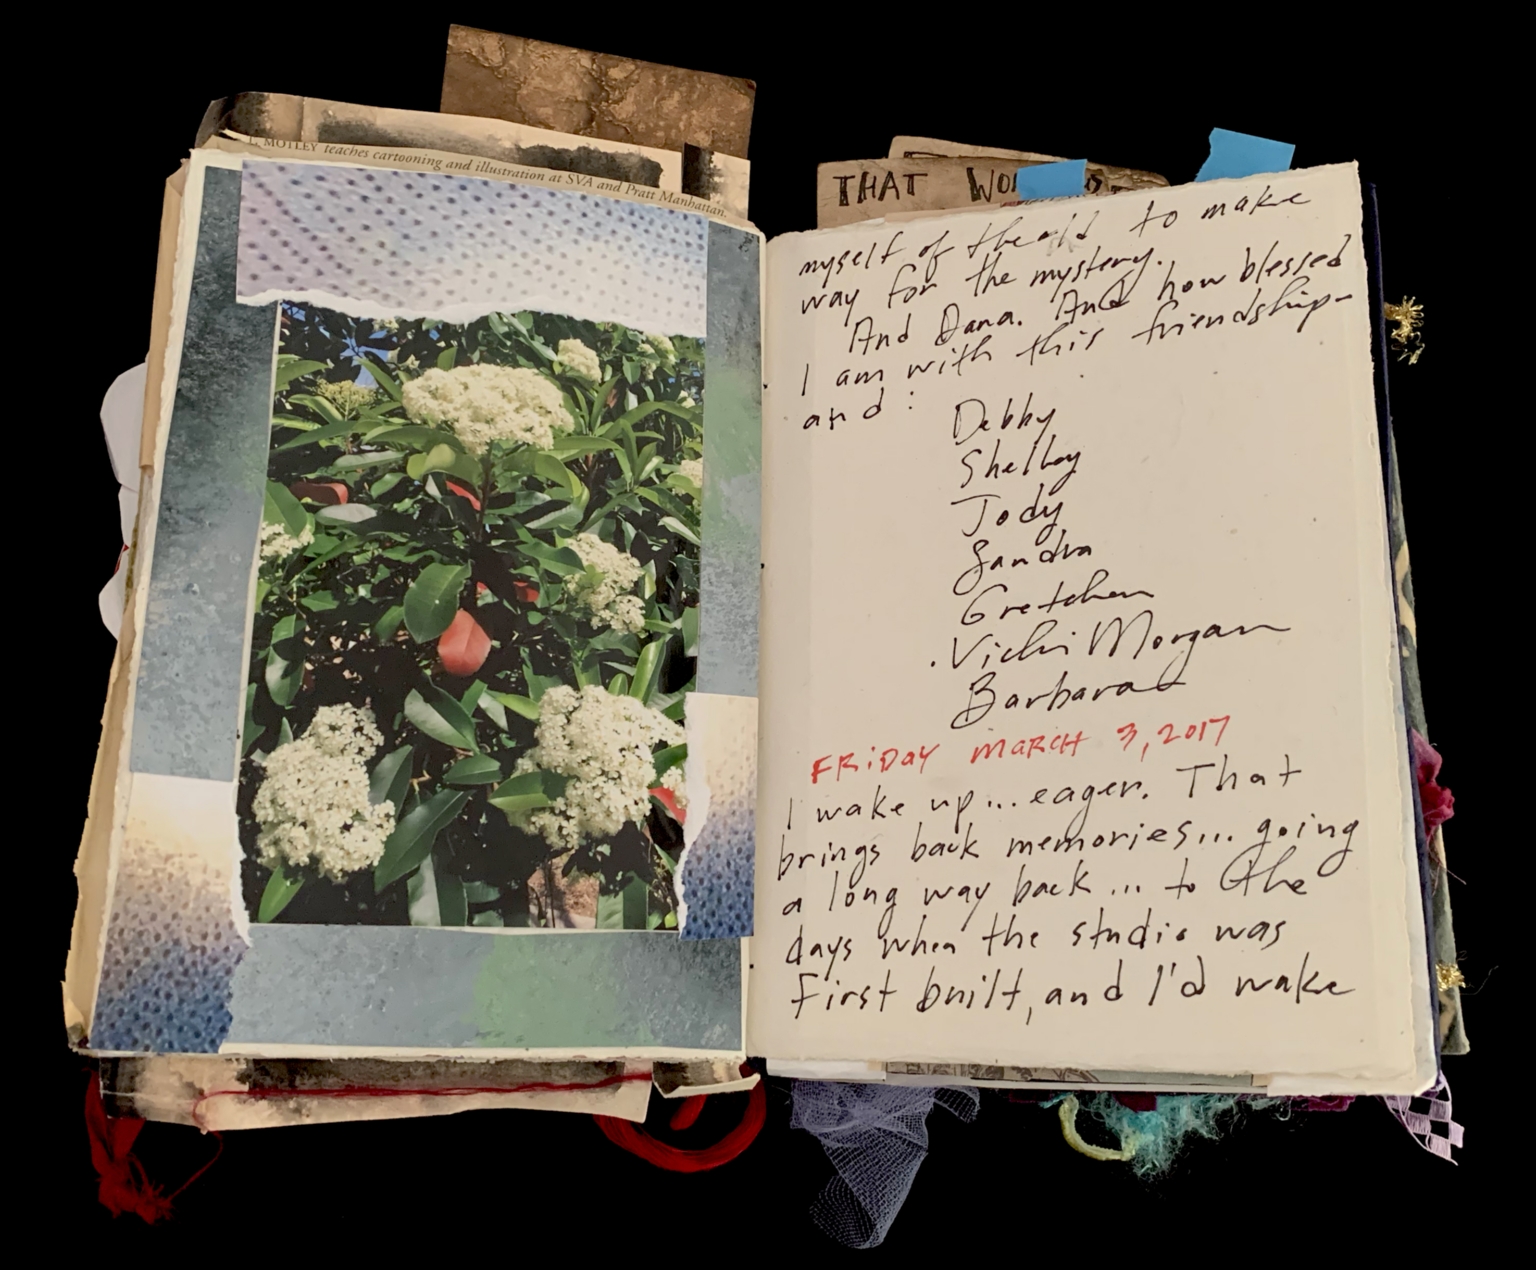 L. MOTLEY teaches cartooning and illustration at SVA and Pratt Manhattan.
THAT
myself of the old to make
way for the mystery.
And Dana. And how blessed
I am with this friendship–
and :
Debby
Shelley
Jody
Sandra
Gretchen
. Vicki Morgan
Barbara
FRiDAY MARCH 3, 2017
I wake up... eager. That
brings back memories... going
a long way back ... to the
days when the studio was
first built, and I'd wake